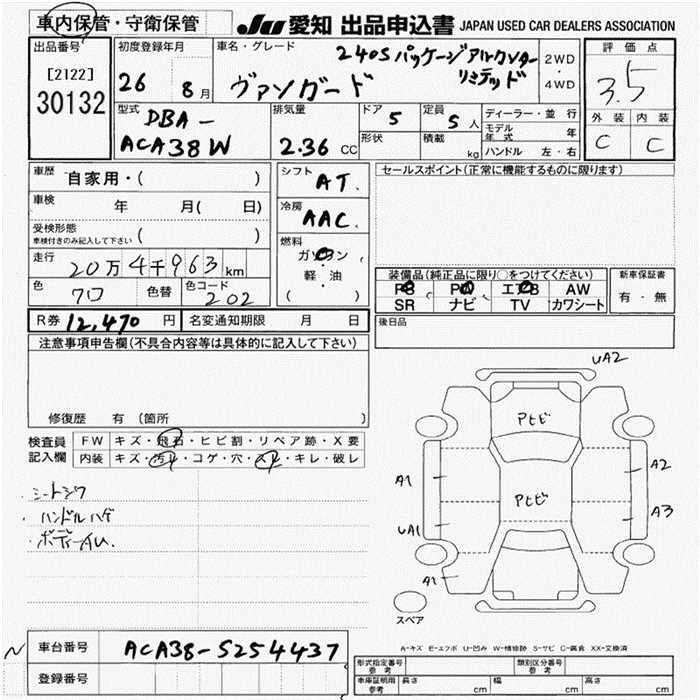 車内保管・守衛保管
JU 愛知 出品申込書 JAPAN USED CAR DEALERS ASSOCIATION
出品番号
[2122]
30132
初度登録年月
26 8月
車名・グレード
240S パッケージアルカンターリミテッド
ヴァンガード
2WD
・
4WD
評価点
3.5
外装 内装
C C
型式
DBA-
ACA38W
排気量
2.36 CC
ドア 5
形状
定員
5人
積載
kg
ディーラー・並行
モデル年式 年
ハンドル 左・右
車歴 自家用・( )
車検 年 月( 日)
受検形態
車検付きのみ記入して下さい ( )
走行 20万4千963km
色 クロ 色替 色コード 202
シフト AT.
冷房 AAC.
燃料
ガソリン
・
軽・油
( )
セールスポイント(正常に機能するものに限ります)
装備品(純正品に限り○をつけてください)
PS PW エアB AW
SR ナビ TV カワシート
新車保証書
有・無
R券 12,470 円 名変通知期限 月 日
後日品
注意事項申告欄(不具合内容等は具体的に記入して下さい)
修復歴 有(箇所 )
検査員
記入欄
FW キズ・飛石・ヒビ割・リペア跡・X要
内装 キズ・汚レ・コゲ・穴・スレ・キレ・破レ
・シートシワ
・ハンドルハゲ
・ボディーAU.
UA2
Aヒビ
A1
A2
Aヒビ
UA1
A3
A1
スペア
A-キズ E-エクボ U-凹み W-補修跡 S-サビ C-腐食 XX-交換済
N
車台番号 ACA38-5254437
登録番号
形式指定番号
参考
類別区分番号
参考
車庫証明用
参考
長さ cm 幅 cm 高さ cm